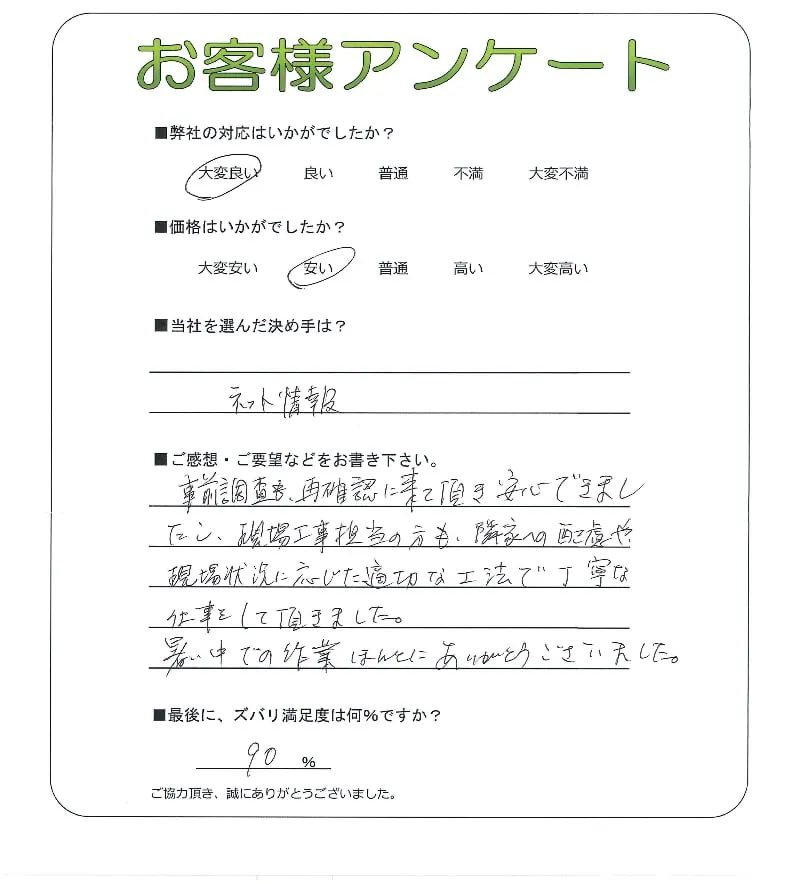 お客様アンケート
■弊社の対応はいかがでしたか？
大変良い 良い 普通 不満 大変不満
■価格はいかがでしたか？
大変安い 安い 普通 高い 大変高い
■当社を選んだ決め手は？
ネット情報
■ご感想・ご要望などをお書き下さい。
事前調査も、再確認に来て頂き安心できまし
たし、現場工事担当の方も、隣家への配慮や
現場状況に応じた適切な工法で丁寧な
仕事をして頂きました。
暑い中での作業ほんとにありがとうございました。
■最後に、ズバリ満足度は何%ですか？
90 %
ご協力頂き、誠にありがとうございました。